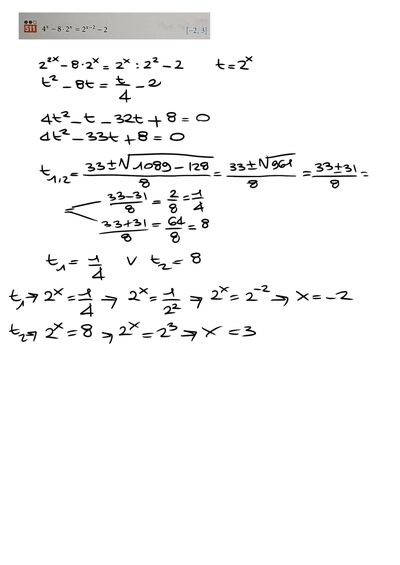 511 4ˣ − 8 · 2ˣ = 2ˣ⁻² − 2 [−2, 3]
2²ˣ − 8 · 2ˣ = 2ˣ : 2² − 2 t = 2ˣ
t² − 8t = t/4 − 2
4t² − t − 32t + 8 = 0
4t² − 33t + 8 = 0
t₁,₂ = (33 ± √(1089 − 128))/8 = (33 ± √961)/8 = (33 ± 31)/8 =
= (33 − 31)/8 = 2/8 = 1/4
(33 + 31)/8 = 64/8 = 8
t₁ = 1/4 ∨ t₂ = 8
t₁ → 2ˣ = 1/4 → 2ˣ = 1/2² → 2ˣ = 2⁻² → x = −2
t₂ → 2ˣ = 8 → 2ˣ = 2³ → x = 3